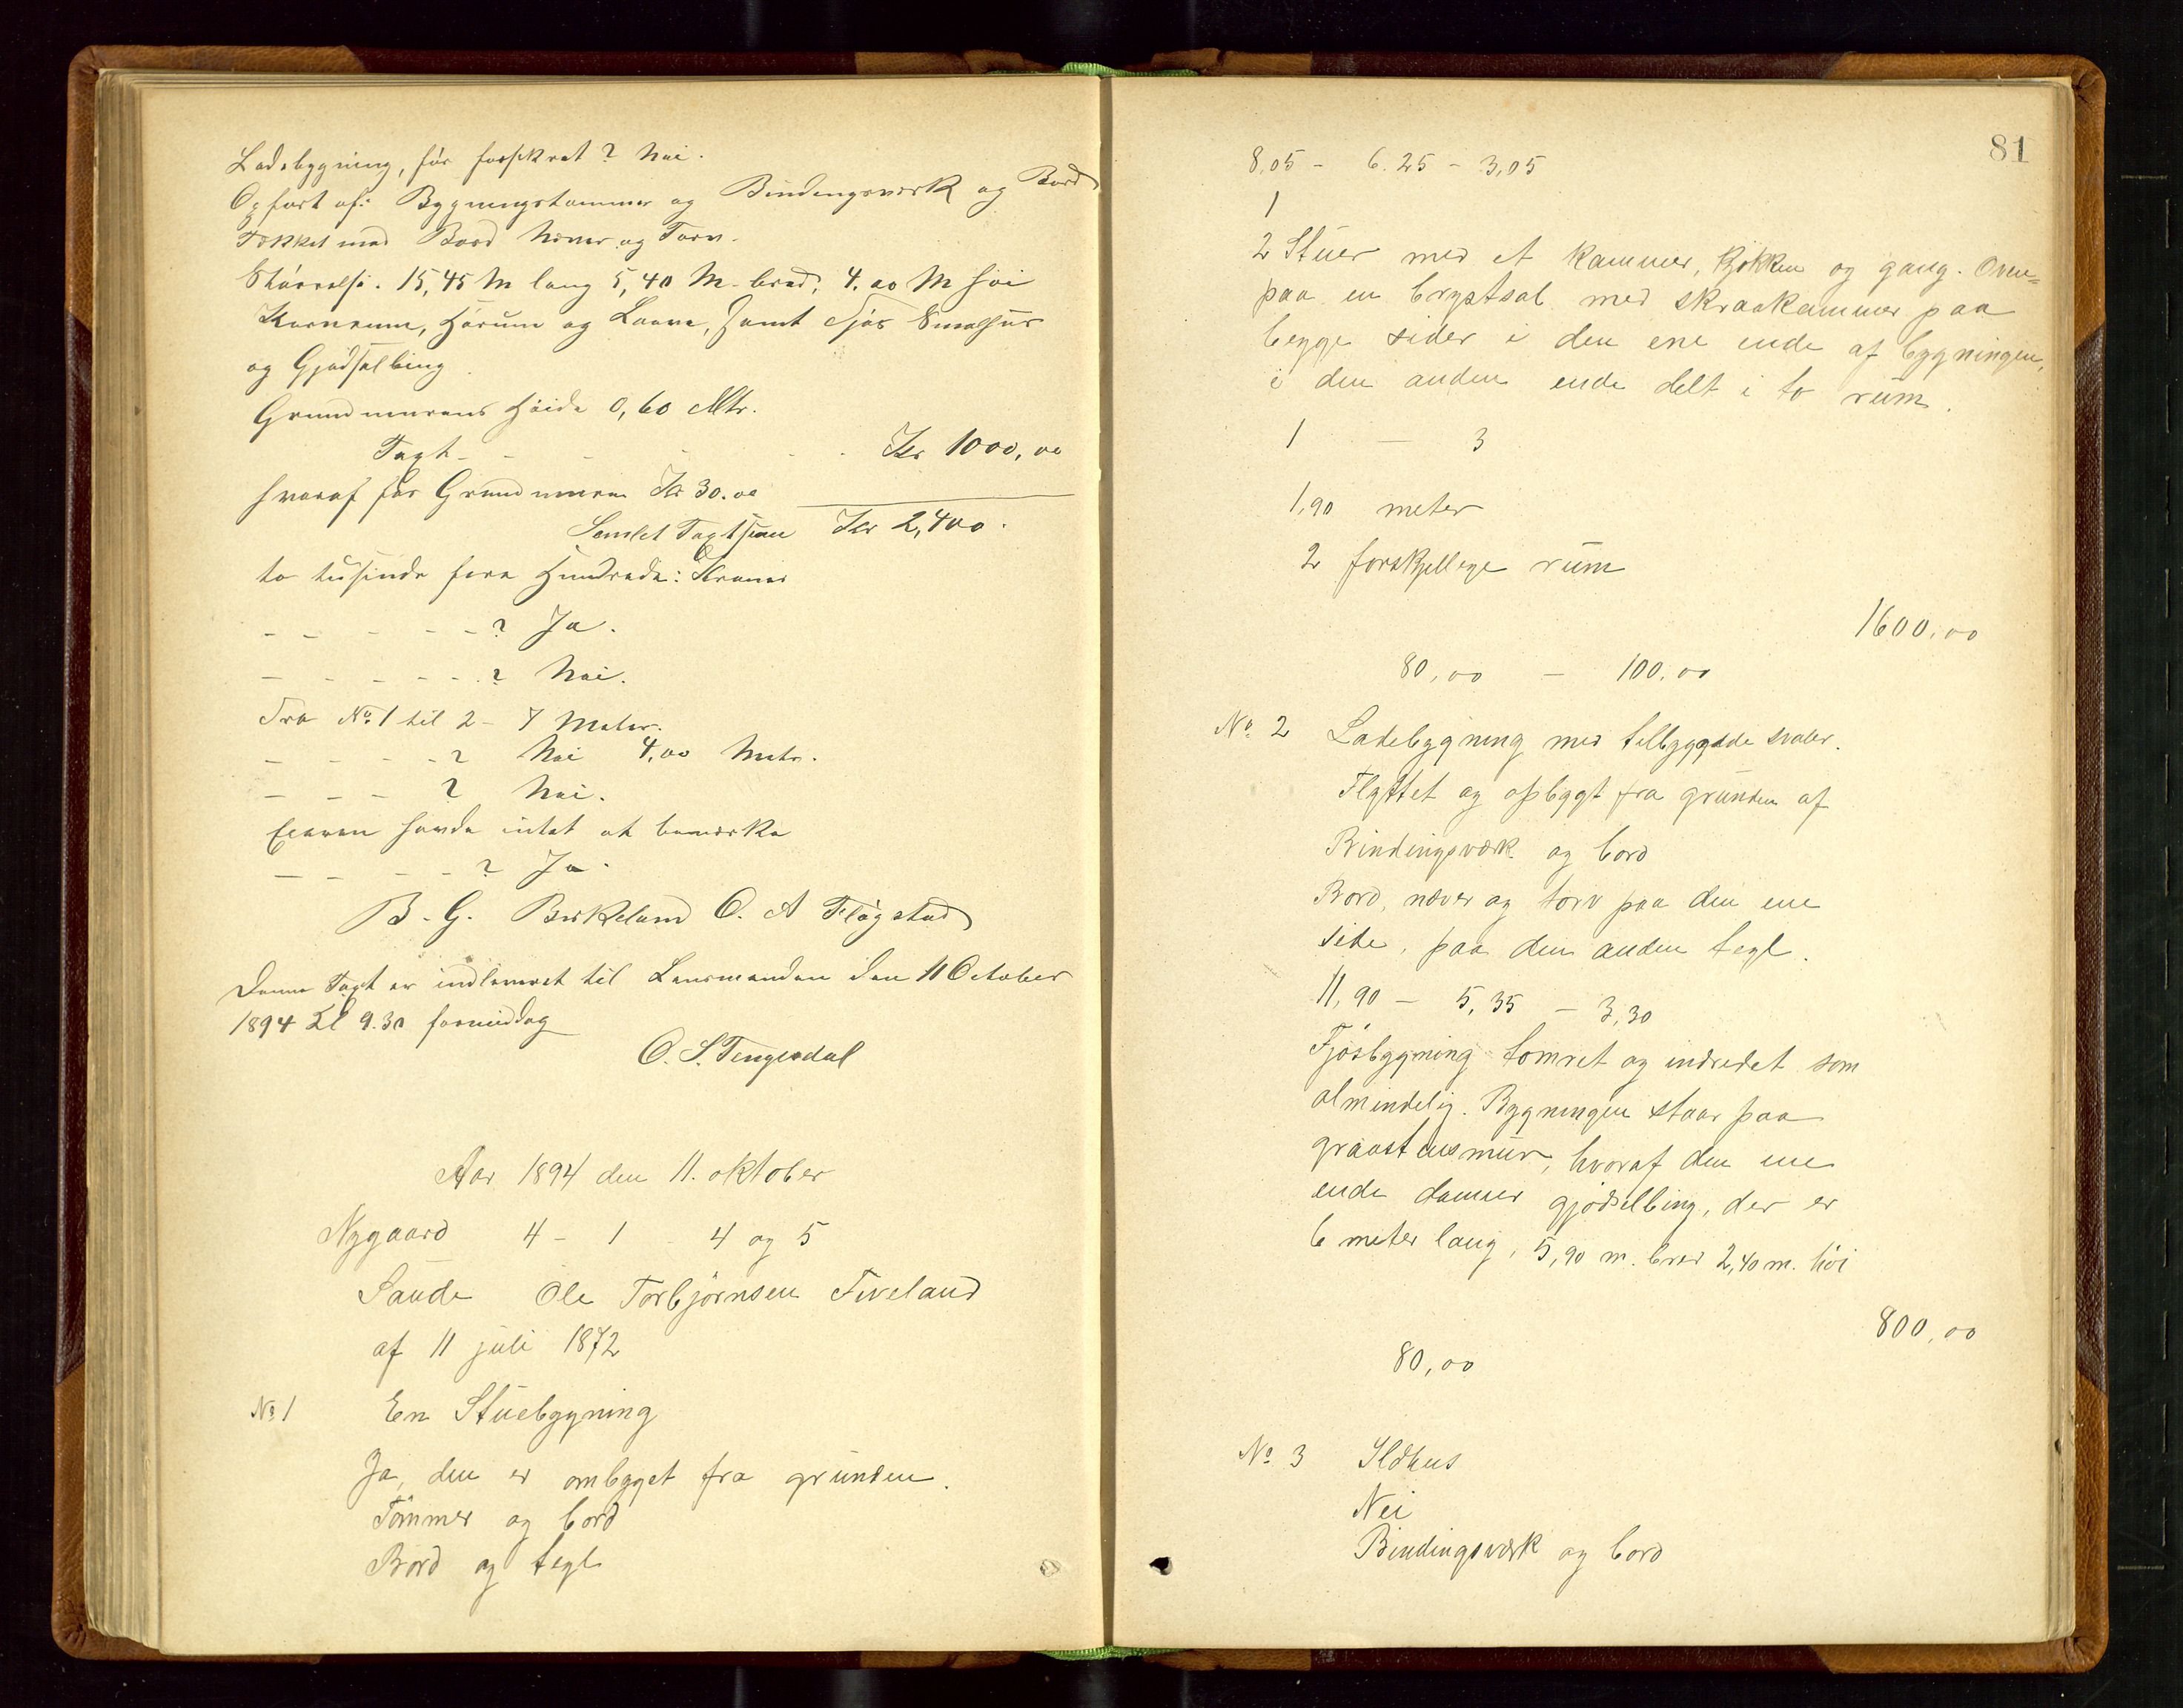 Ladebygning, før forsikret? Nei.
Opført af: Bygningstømmer og Bindingsværk og Bord
Tækket med Bord Næver og Torv.
Størrelse. 15,45 M lang 5,40 M. bred, 4.00 M høi
Kornrum, Hørum og Laave, samt Fjøs Smalhus
og Gjødselbing.
Grundmurens Høide 0,60 Mtr.
Taxt - - - - - Kr 1000,00
hvoraf for Grundmuren Kr 30.00
Samlet Taxtsum Kr 2,400.
to tusinde fire Hundrede: Kroner
- - - - - ? Ja.
- - - - - ? Nei.
Fra No. 1 til 2 - 7 Meter.
- - - - ? Nei 4,00 Metr.
- - - ? Nei.
Eieren havde intet at bemærke
- - - - ? Ja.
B. G. Birkeland O. A Fløgstad
Denne Taxt er indleveret til Lensmanden den 11 October
1894 Kl 9.30 formiddag
O. S. Tengesdal
Aar 1894 den 11. oktober
Nygaard 4 - 1 - 4 og 5
Saude Ole Torbjørnsen Fiveland
af 11 juli 1872
No 1 En Stuebygning
Ja, den er ombyget fra grunden.
Tømmer og bord
Bord og tegl
81
8,05 - 6.25 - 3,05
1
2 Stuer med et kammer, kjøkken og gang. Oven=
paa en brystsal med skraakammer paa
begge sider i den ene ende af bygningen,
i den anden ende delt i to rum.
1 - 3
1,90 meter
2 forskjellige rum
1600,00
80,00 - 100,00
No. 2 Ladebygning med tilbyggede svaler.
Flyttet og opbygt fra grunden af
Bindingsværk og bord
Bord, næver og torv paa den ene
side, paa den anden tegl.
11,90 - 5,35 - 3,30
Fjøsbygning tømret og indredet som
almindelig. Bygningen staar paa
graastensmur, hvoraf den ene
ende danner gjødselbing, der er
6 meter lang, 5,90 m. bred 2,40 m. høi
800,00
80,00
No 3 Ildhus
Nei
Bindingsværk og bord